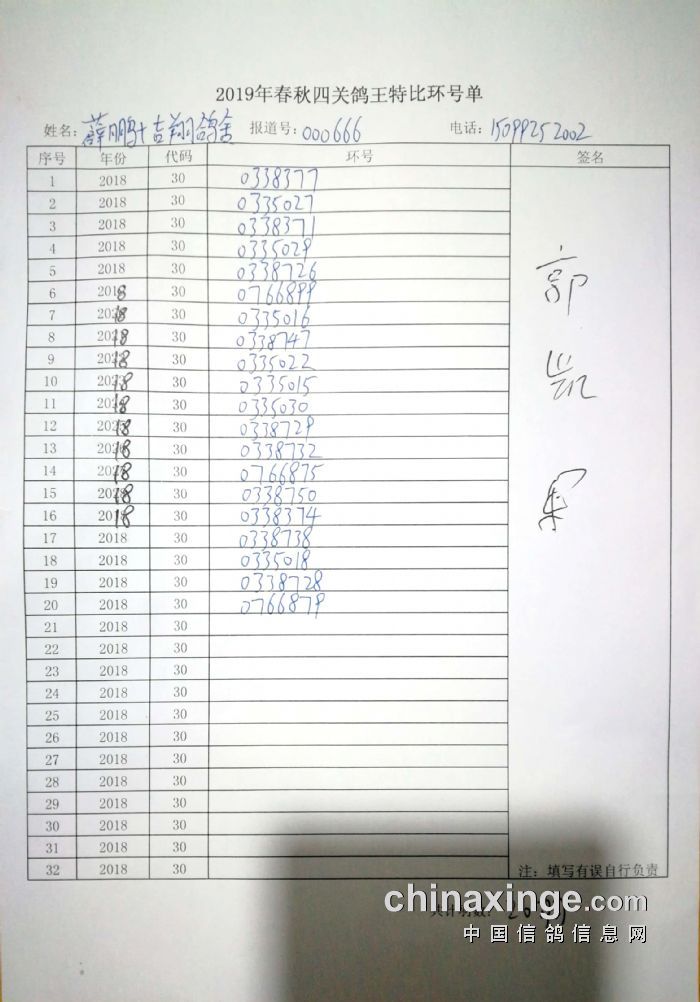 2019年春秋四关鸽王特比环号单
姓名: 薛鹏+吉翔鸽舍 报道号: 000666 电话: 15099252002
序号 年份 代码 环号 签名
1 2018 30 0338377
2 2018 30 0335027
3 2018 30 0338371
4 2018 30 0335029
5 2018 30 0338726
6 2018 30 0766899
7 2018 30 0335016
8 2018 30 0338747
9 2018 30 0335022
10 2018 30 0335015
11 2018 30 0335030
12 2018 30 0338729
13 2018 30 0338732
14 2018 30 0766875
15 2018 30 0338750
16 2018 30 0338374
17 2018 30 0338738
18 2018 30 0335018
19 2018 30 0338728
20 2018 30 0766879
21 2018 30
22 2018 30
23 2018 30
24 2018 30
25 2018 30
26 2018 30
27 2018 30
28 2018 30
29 2018 30
30 2018 30
31 2018 30
32 2018 30
郭
凯
注: 填写有误自行负责
共计羽数:
chinaxinge.com
中国信鸽信息网